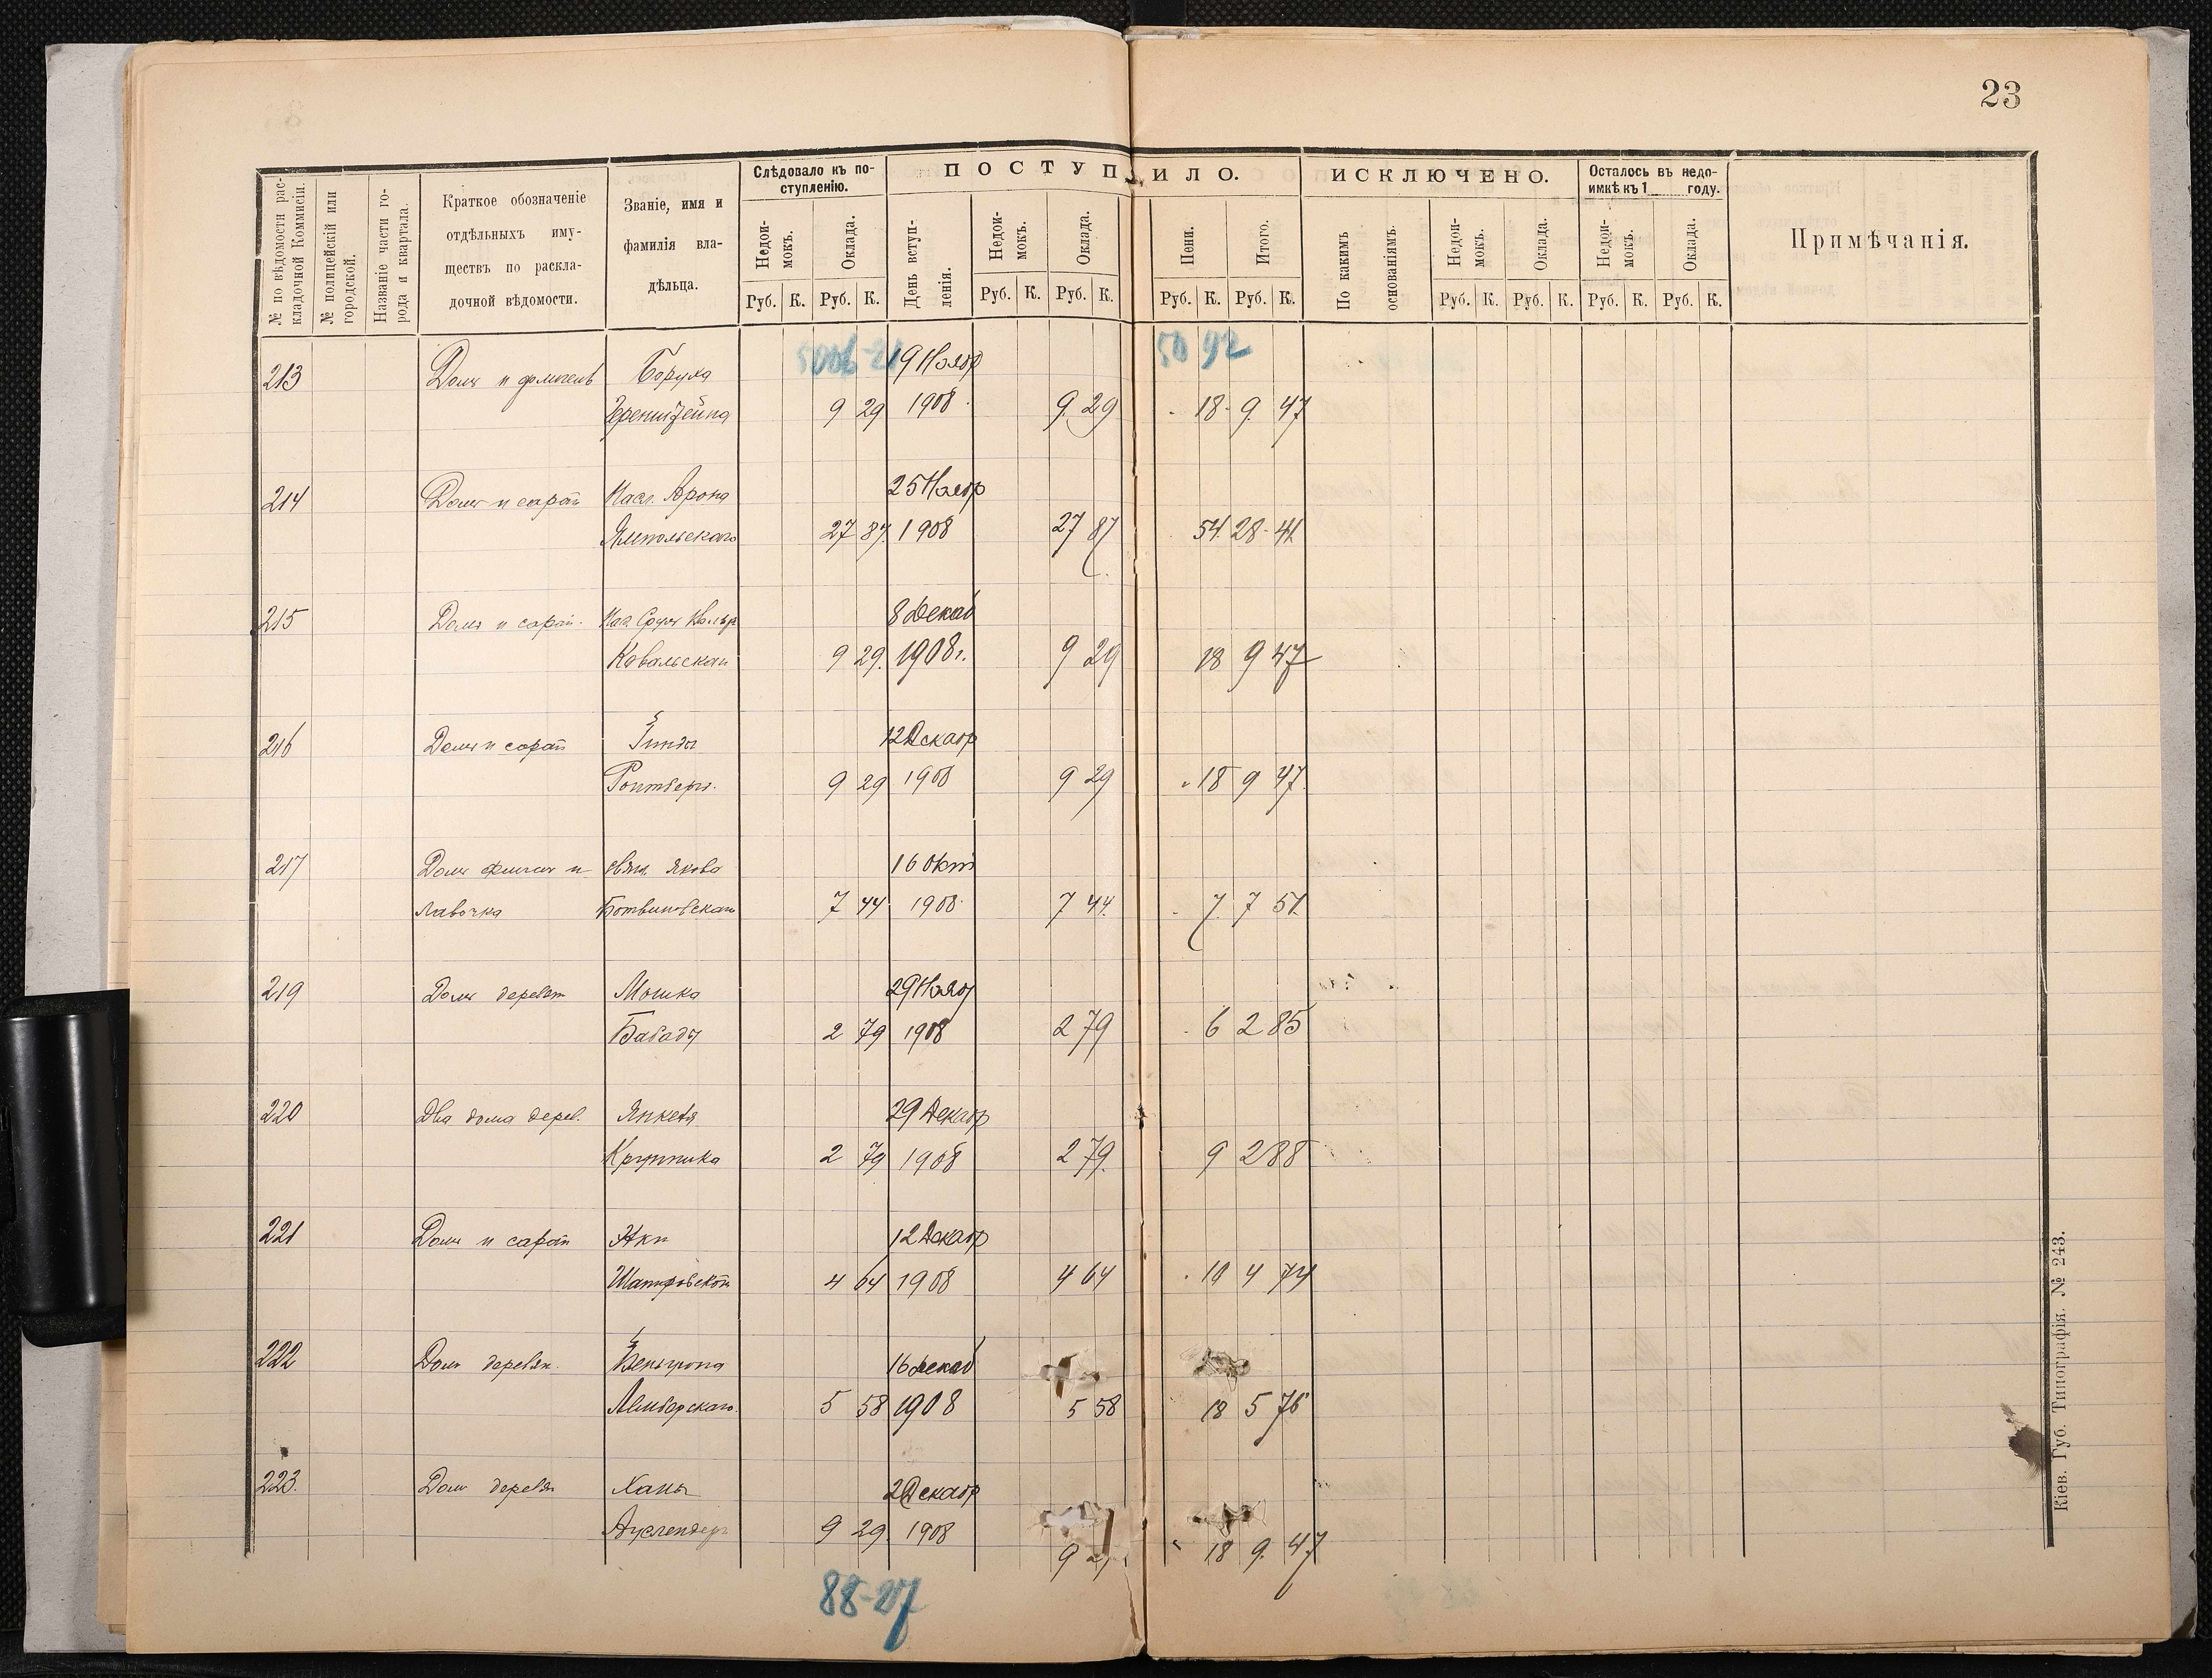 23
№ по вѣдомости рас-
кладочной Коммисіи.
№ полицейскій или
городской.
Названіе части го-
рода и квартала.
Краткое обозначеніе
отдѣльныхъ иму-
ществъ по раскла-
дочной вѣдомости.
Званіе, имя и
фамилія вла-
дѣльца.
Слѣдовало къ по-
ступленію.
Недои-
мокъ.
Оклада.
Руб. К. Руб. К.
ПОСТУПИЛО.
День вступ-
ленія.
Недои-
мокъ.
Оклада.
Пени.
Итого.
Руб. К. Руб. К. Руб. К. Руб. К.
ИСКЛЮЧЕНО.
По какимъ
основаніямъ.
Недои-
мокъ.
Оклада.
Руб. К. Руб. К.
Осталось въ недо-
имкѣ къ 1 году.
Недои-
мокъ.
Оклада.
Руб. К. Руб. К.
Примѣчанія.
50 92
213 Домъ и флигель Боруха 19 Нояб
9 29 1908 9 29 18 9 47
214 Домъ и сарай Насл. Арона 25 Нояб
Ямпольскаго 27 87 1908 27 87 54 28 41
215 Домъ и сарай Нас. 8 Декаб
Ковальскаго 9 29 1908 г. 9 29 18 9 47
216 Домъ и сарай 12 Декабр
Ройтберга 9 29 1908 9 29 18 9 47
217 Домъ флигель и свящ. Якова 16 Окт
лавочка Ботвиновскаго 7 44 1908 7 44 7 7 51
219 Домъ деревян Мошка 29 Нояб
2 79 1908 2 79 6 2 85
220 Два дома дерев. Янкеля 29 Декабр
Крупника 2 79 1908 2 79 9 2 88
221 Домъ и сарай 12 Декабр
4 64 1908 4 64 10 4 74
222 Домъ деревян. 16 Декаб
5 58 1908 5 58 18 5 76
223. Домъ деревян Ханы Декабр
Ауслендеръ 9 29 1908 9 18 9 47
88-27
Кіев. Губ. Типографія. № 243.